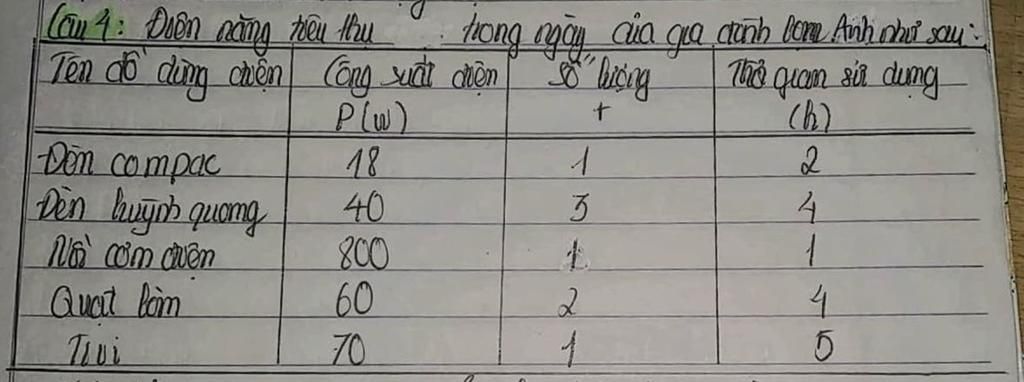 Câu 4: Điện năng tiêu thụ trong ngày của gia đình bạn Anh như sau:
Tên đồ dùng điện Công suất điện Số lượng Thời gian sử dụng
P(W) + (h)
Đèn compac 18 1 2
Đèn huỳnh quang 40 3 4
Nồi cơm điện 800 1 1
Quạt bàn 60 2 4
Ti vi 70 1 5